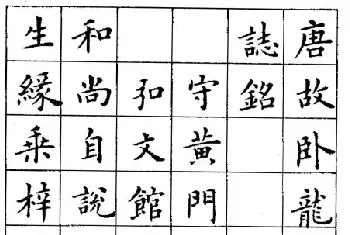 唐故卧龍
誌銘
守黃門
弘文館
和尚自說
生緣乗梓